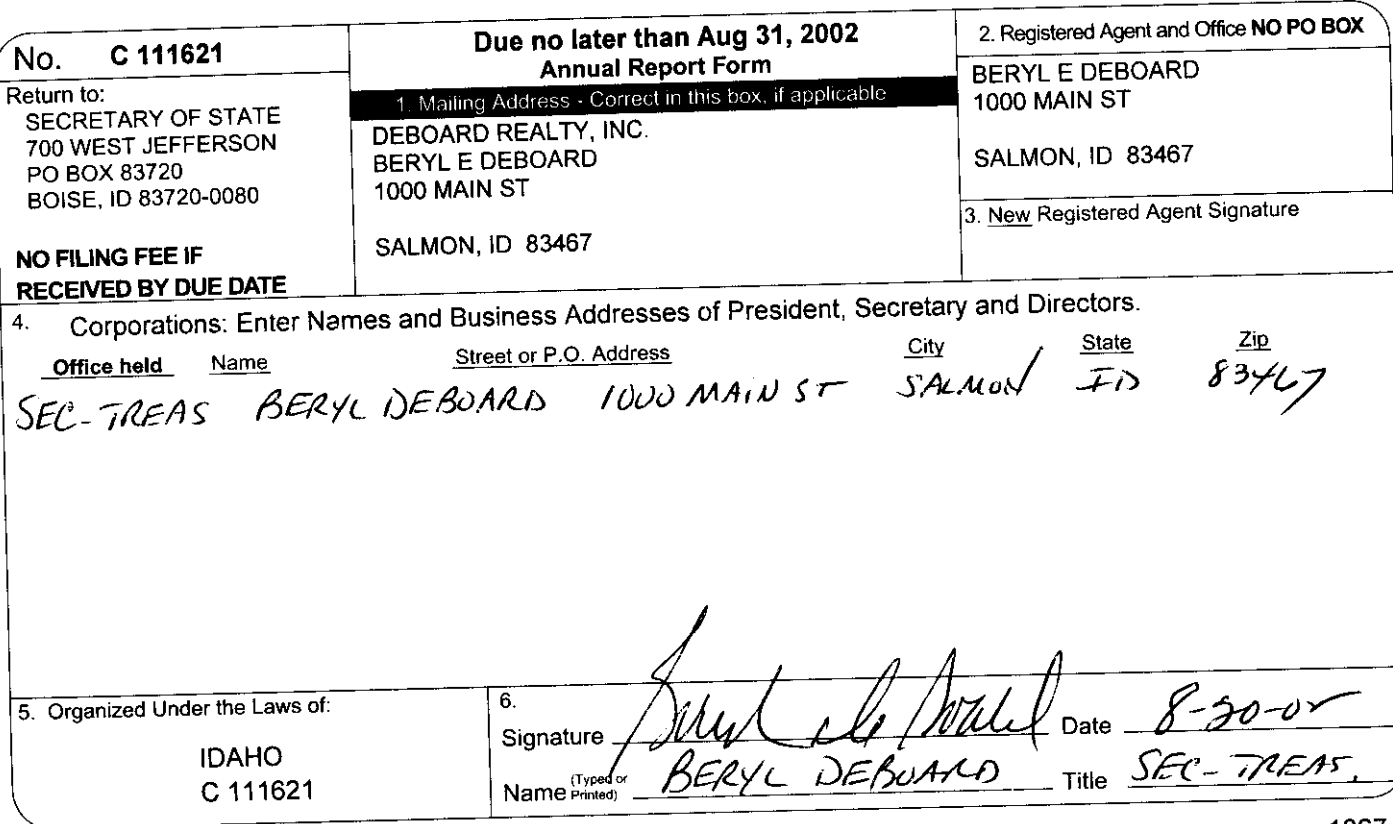 No. C 111621
Return to:
SECRETARY OF STATE
700 WEST JEFFERSON
PO BOX 83720
BOISE, ID 83720-0080
NO FILING FEE IF
RECEIVED BY DUE DATE
Due no later than Aug 31, 2002
Annual Report Form
1. Mailing Address - Correct in this box, if applicable
DEBOARD REALTY, INC.
BERYL E DEBOARD
1000 MAIN ST
SALMON, ID 83467
2. Registered Agent and Office NO PO BOX
BERYL E DEBOARD
1000 MAIN ST
SALMON, ID 83467
3. New Registered Agent Signature
4. Corporations: Enter Names and Business Addresses of President, Secretary and Directors.
Office held Name Street or P.O. Address City State Zip
SEC-TREAS BERYL DEBOARD 1000 MAIN ST SALMON ID 83467
5. Organized Under the Laws of:
IDAHO
C 111621
6.
Signature Beryl DeBoard Date
Name (Typed or Printed) BERYL DEBOARD Title SEC-TREAS.